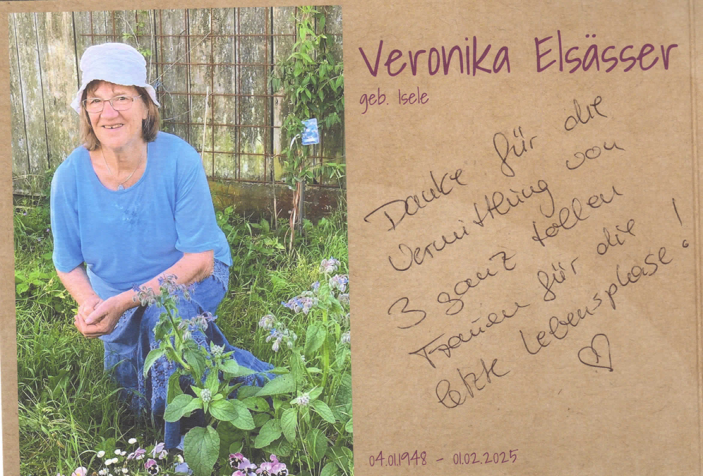 Veronika Elsässer
geb. Isele
Danke für die
Vermittlung von
3 ganz tollen
Frauen für die
letzte Lebensphase!
04.01.1948 - 01.02.2025